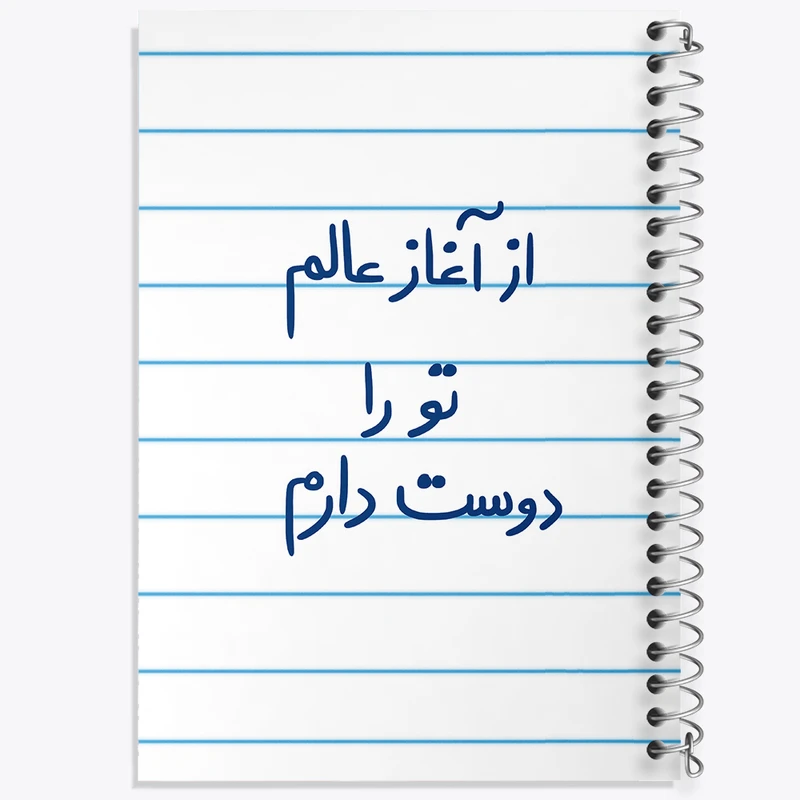 از آغاز عالم
تو را
دوست دارم